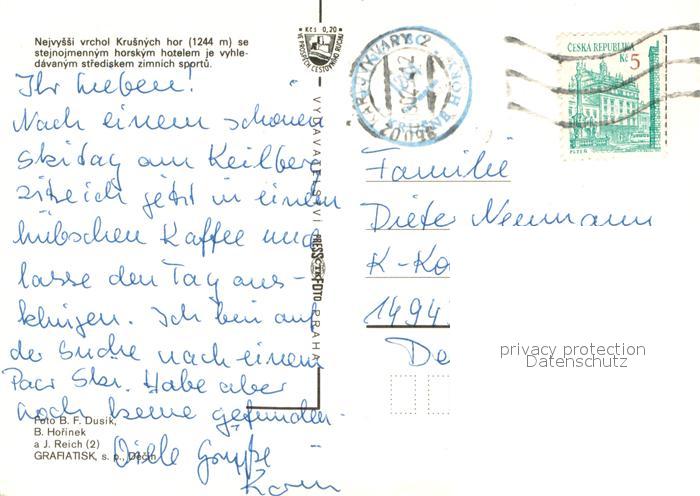 Nejvyšši vrchol Krušných hor (1244 m) se
stejnojmenným horským hotelem je vyhle-
dávaným střediskem zimních sportů.
Ihr Lieben!
Nach einem schönen
Skitag am Keilberg
sitze ich jetzt in einem
hübschen Kaffee und
lasse den Tag aus-
klingen. Ich bin auf
der Suche nach einem
Paar Ski. Habe aber
noch keine gefunden.
Viele Grüße
Foto B. F. Dusík,
B. Hořínek
a J. Reich (2)
GRAFIATISK, s. p., Děčín
Kčs 0,20
VYDAVATELSTVÍ
PRESSFOTO
PRAHA
KARLOVY VARY 2
ČESKA REPUBLIKA
Kč 5
PLZEŇ
Familie
Dieter Neumann
K-Ko
1494
De
privacy protection
Datenschutz